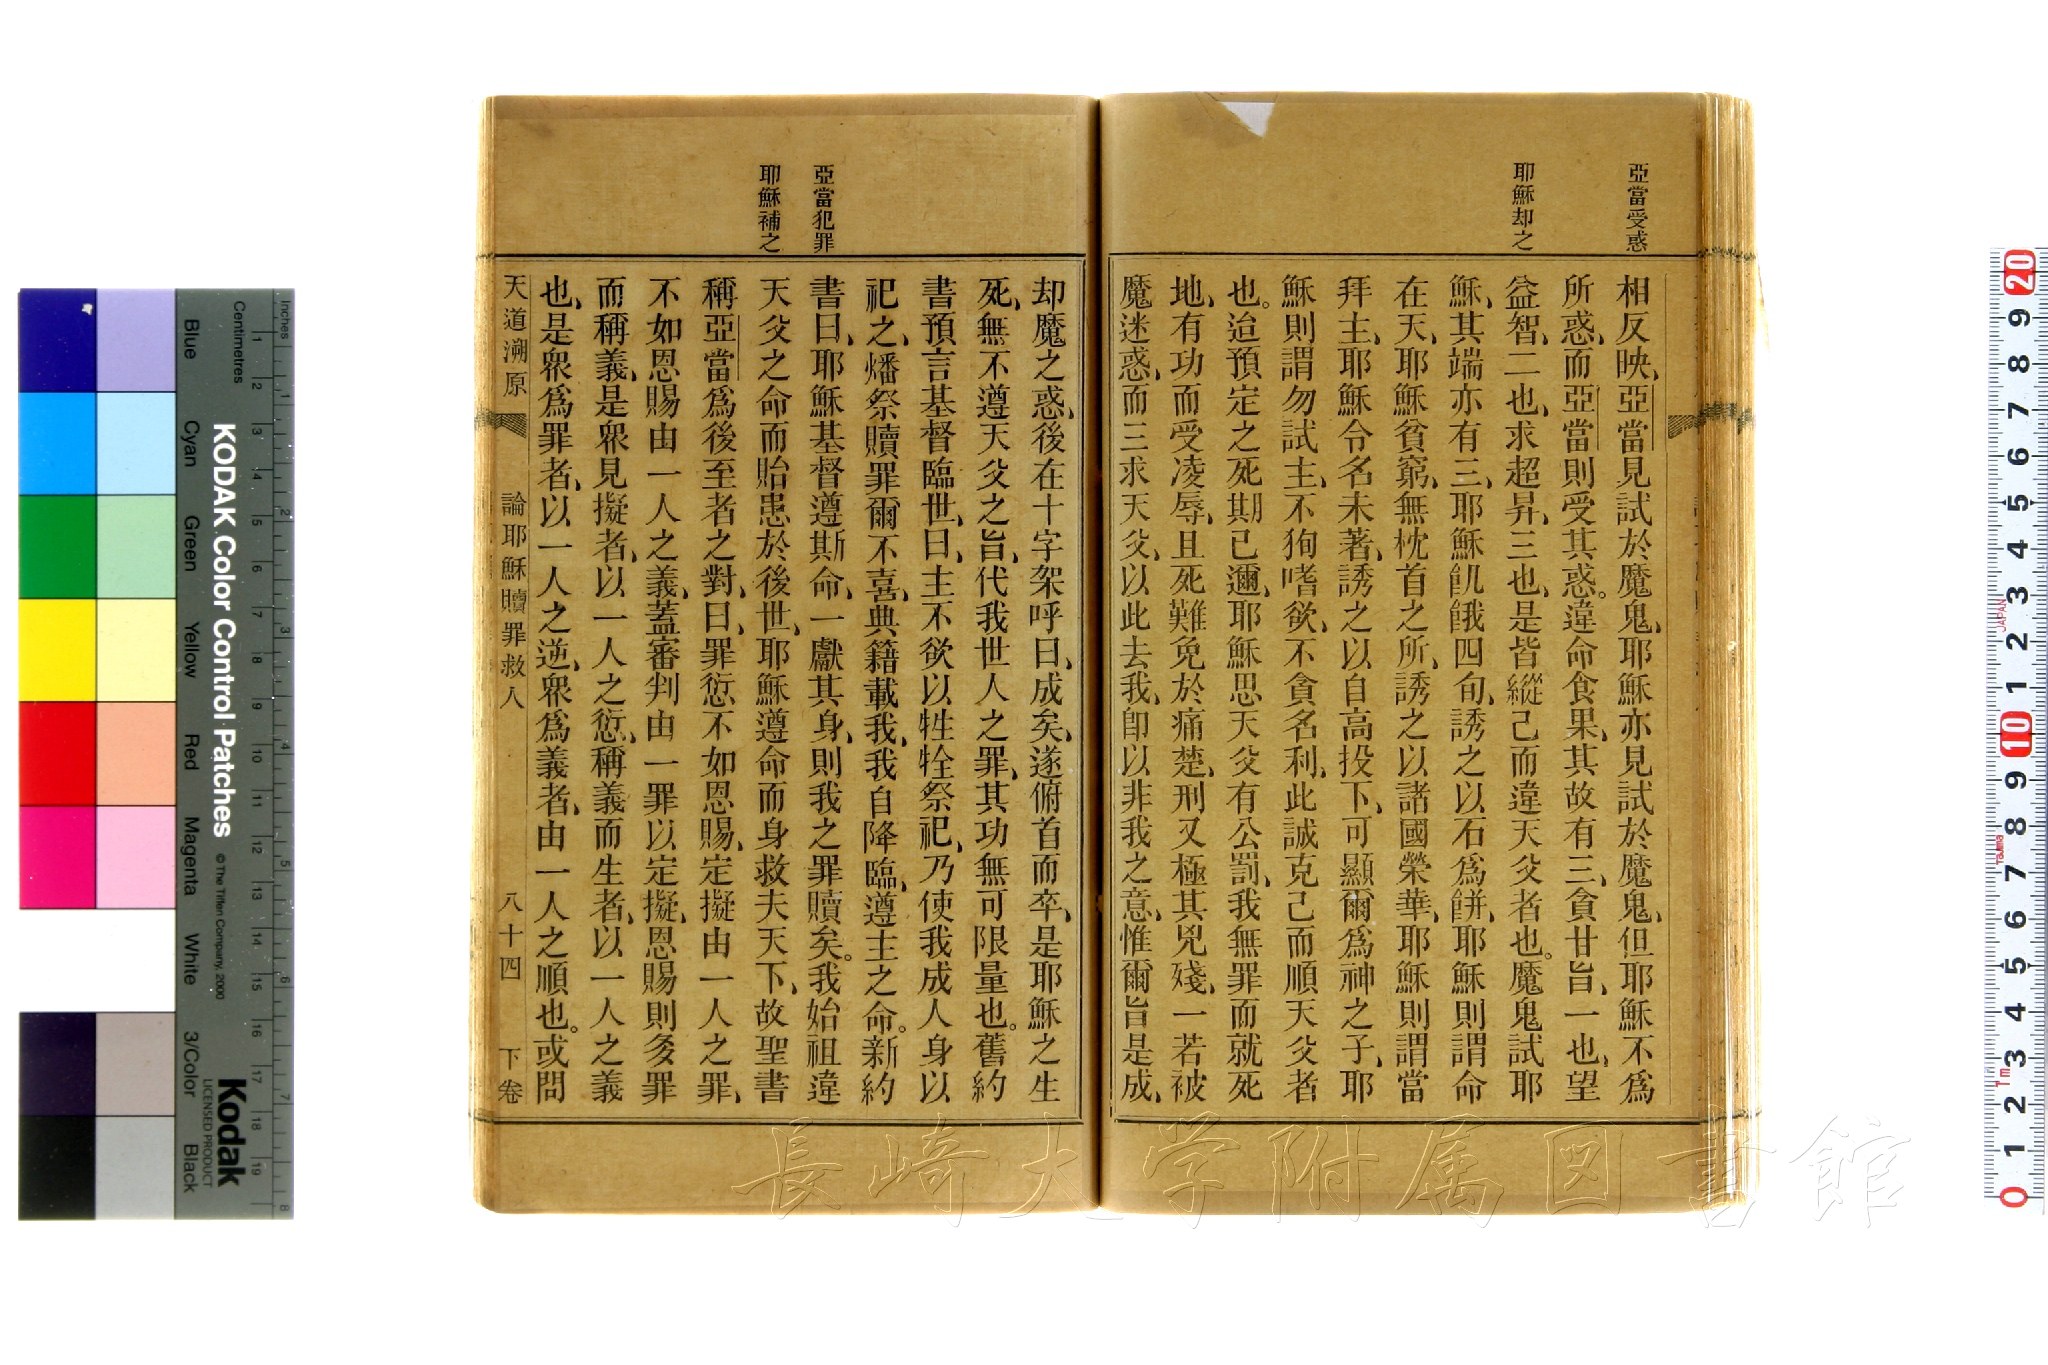 亞當受惑
耶穌却之
相反映、亞當見試於魔鬼、耶穌亦見試於魔鬼、但耶穌不爲
所惑、而亞當則受其惑。違命食果、其故有三、貪甘旨、一也、望
益智、二也、求超昇、三也、是皆縱己而違天父者也。魔鬼試耶
穌、其端亦有三、耶穌飢餓四旬、誘之以石爲餅、耶穌則謂命
在天、耶穌貧窮、無枕首之所、誘之以諸國榮華、耶穌則謂當
拜主、耶穌令名未著、誘之以自高投下、可顯爾爲神之子、耶
穌則謂勿試主、不狥嗜欲、不貪名利、此誠克己而順天父者
也。迨預定之死期已邇、耶穌思天父有公罰、我無罪而就死
地、有功而受凌辱、且死難免於痛楚、刑又極其兇殘、一若被
魔迷惑、而三求天父、以此去我、卽以非我之意、惟爾旨是成、
亞當犯罪
耶穌補之
却魔之惑、後在十字架呼曰、成矣、遂俯首而卒、是耶穌之生
死、無不遵天父之旨、代我世人之罪、其功無可限量也。舊約
書預言基督臨世、曰、主不欲以牲牷祭祀、乃使我成人身以
祀之、燔祭贖罪爾不喜、典籍載我、我自降臨、遵主之命。新約
書曰、耶穌基督遵斯命、一獻其身、則我之罪贖矣。我始祖違
天父之命而貽患於後世、耶穌遵命而身救夫天下、故聖書
稱亞當爲後至者之對、曰、罪愆不如恩賜、定擬由一人之罪、
不如恩賜由一人之義、蓋審判由一罪以定擬、恩賜則多罪
而稱義、是衆見擬者、以一人之愆、稱義而生者、以一人之義
也、是衆爲罪者、以一人之逆、衆爲義者、由一人之順也。或問
天道溯原 論耶穌贖罪救人 八十四 下卷
KODAK Color Control Patches
© The Tiffen Company, 2000
Kodak
LICENSED PRODUCT
Inches
Centimetres
Blue Cyan Green Yellow Red Magenta White 3/Color Black
長崎大学附属図書館